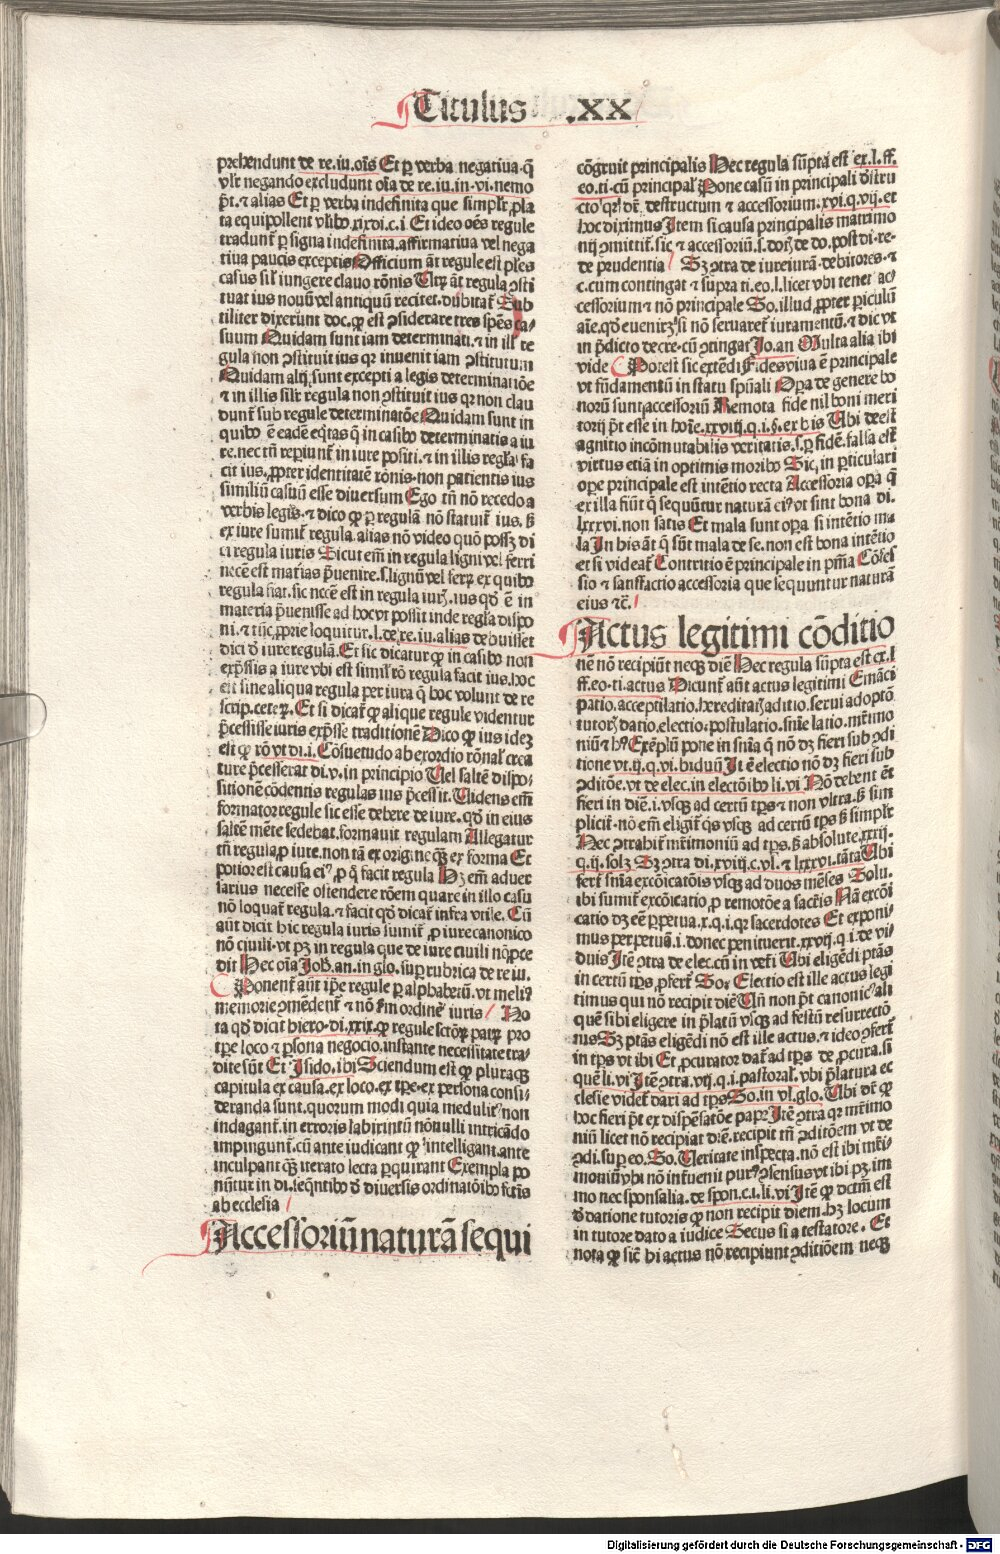 Titulus .XX
prehendunt de re.iu.oīs Et ꝑ verba negatiua·q̄
vlr̄ negando excludunt oīa de re.iu.in·vi·nemo
p̄t.⁊ alias Et ꝑ verba indefinita que simplr̄ ꝓla
ta equipollent vl̓ibꝰ.xix.di.c.i Et ideo oēs regule
tradunt̄ ꝑ signa indefinita.affirmatiua vel nega
tiua paucis exceptis Officium aūt regule est ꝑles
casus sil̓ iungere clauo rōnis Utrū aūt regula ꝯsti
tuat ius nouū vel antiquū recitet.dubitat̄ Sub
tiliter dixerunt doc.ꝙ est ꝯsiderare tres spēs ca/
suum Quidam sunt iam determinati.⁊ in ill̓ re
gula non ꝯstituit ius qꝛ inuenit iam ꝯstitutum
Quidam alij sunt excepti a legis determinatiōe
⁊ in illis sil̓r regula non ꝯstituit ius qꝛ non clau
dunt̄ sub regule determinatōe Quidam sunt in
quibꝰ ē eadē eq̄tas q̄ in casibꝰ determinatis a iu
re.nec tn̄ reperiunt̄ in iure positi.⁊ in illis regl̓a fa
cit ius.ꝓpter identitatē rōnis·non patientis ius
similiū casuū esse diuersum Ego tn̄ nō recedo a
verbis legis·⁊ dico ꝙ ꝑ regulā nō statuit̄ ius.ß
ex iure sumit̄ regula.alias nō video quō possꝫ di
ci regula iuris Sicut em̄ in regula ligni vel ferri
necē est mat̓ias p̄uenire.s.lignū vel ferꝝ ex quibꝰ
regula fiat.sic necē est in regula iuris.ius qd̓ ē in
materia p̄uenisse ad hoc vt possit inde regl̓a dispo
ni.⁊ tūc ꝓprie loquitur.l.de re.iu.alias debuisset
dici d̓ iure regulā.Et sic dicatur ꝙ in casibꝰ non
exp̄ssis a iure vbi est simil̓ rō regula facit ius.hoc
est sine aliqua regula per iura q̄ hoc volunt de re
scrip.ceteꝝ.Et si dicat̄ ꝙ alique regule videntur
p̄cessisse iuris exp̄sse traditionē Dico ꝙ ius idēꝫ
est ꝙ rō vt di.i.Cōsuetudo ab exordio rōnal̓ crea
ture p̄cesserat di.v.in principio Uel saltē dispo/
sitionē cōdentis regulas ius p̄cessit.Uidens em̄
formator regule sic esse debere de iure.qd̓ in eius
saltē mēte sedebat.formauit regulam Allegatur
tn̄ regula ꝓ iure.non tā ex origine q̄ꝫ ex forma Et
potior est causa ciꝰ ꝓ q̄ facit regula Hꝫ em̄ aduer
sarius necesse ostendere rōem quare in illo casu
nō loquat̄ regula.⁊ facit qd̓ dicat̄ infra vtile.Cū
aūt dicit hic regula iuris sumit̄ ꝓ iure canonico
nō ciuili·vt pꝫ in regula que de iure ciuili nq̄ꝓce
dit Hec oīa Joh̓.an.in glo.suꝑ rubrica de re iu.
Ponent̄ aūt ip̄e regule ꝑ alphabetū.vt meliꝰ
memorie ꝯmēdent̄ ⁊ nō s̄m ordinē iuris No
ta qd̓ dicit hiero·di.xxix.ꝙ regule sctōꝝ patꝝ pro
tp̄e loco ⁊ ꝑsona negocio.instante necessitate tra/
dite sūt Et Isido.ibi Sciendum est ꝙ pluraq̄ꝫ
capitula ex causa.ex loco.ex tp̄e·ex persona consi/
deranda sunt.quorum modi quia medulit̓ non
indagant̄.in erroris labirintū nōnulli intricādo
impingunt.cū ante iudicant ꝙ̓ intelligant.ante
inculpant q̄ꝫ iterato lecta perquirant Exempla po
nūtur in di.seq̄ntibꝰ d̓ diuersis ordinatōibꝰ fctīs
ab ecclesia
Accessoriū naturā sequi
cōgruit principalis Hec regula sūpta est ex.l.ff.
eo.ti.cū principal̓ Pone casū in principali d̓stru
cto qꝛ̓ dr̄ destructum ⁊ accessorium.xvi.q.vij.et
hoc diximus Item si causa principalis matrimo
nij ꝯmittit̄.sic ⁊ accessoriū.s.dotis de do.post di.re·
de prudentia Sꝫ ꝯtra de iureiurā.debitores·⁊
c.cum contingat ⁊ supra ti.eo.l.licet vbi tenet ac/
cessorium ⁊ nō principale So.illud ꝓpter ꝑiculū
aīe.qd̓ eueniꝛꝫ si nō seruaret̄ iuramentū.⁊ dic vt
in p̄dicto decre·cū ꝯtingat Jo.an Multa alia ibi
vide Potest sic extēdi Fides viua ē principale
vt fūdamentū in statu spūali Oꝑa de genere bo
norū sunt accessoriū Remota fide nil boni meri
torij pt̄ esse in hoīe.xxviij.q.i.§.ex his Ubi deest
agnitio incōmutabilis veritatis.s.ꝑ fidē.falsa est
virtus etiā in optimis moribꝰ Sic in ꝑticulari
oꝑe principale est intētio recta Accessoria oꝑa q̄
ex illa fiūt q̄ sequūtur naturā eiꝰ vt sint bona di.
lxxxvi.non satis Et mala sunt oꝑa si intētio ma
la In his āt q̄ sūt mala de se.non est bona intētio
et si videat̄ Contritio ē principale in pn̄ia Cōfes
sio ⁊ satisfactio accessoria que sequuntur naturā
eius ⁊c̄.
Actus legitimi cōditio
nē nō recipiūt neqꝫ diē Hec regula sūpta est ex.l
ff.eo.ti.actus Dicunt̄ aūt actus legitimi Emāci
patio.acceptilatio.hereditatis aditio.serui adoptō
tutoris datio.electio.postulatio.snīe latio.mr̄imo
niū ⁊ hꝰ Exēplū pone in snīa q̄ nō dꝫ fieri sub ꝯdi
tione vt.ij.q.vi.biduū Jt̄ ē electio nō dꝫ fieri sub
ꝯditōe.vt de elec.in electōibꝰ li.vi Nō debent ēt
fieri in diē.i.vsqꝫ ad certū tp̄s ⁊ non vltra.ß sim
plicit̓·nō em̄ eligit̄ qͥs vsqꝫ ad certū tp̄s ß simplr̄
Nec ꝯtrahit̄ mr̄imoniū ad tp̄s.ß absolute.xxxij.
q.ij.solꝫ Sꝫ ꝯtra di.xviij.c.vl.⁊ lxxvi.tāta Ubi
fert̄ snīa excōicatōis vsqꝫ ad duos mēses Solu.
ibi sumit̄ excōicatio ꝓ remotōe a sacris Nā excōi
catio dꝫ eē ꝑpetua.x.q.i.qꝛ sacerdotes Et exponi/
mus perpetuā.i.donec penituerit.xxvij.q.i.de vi/
duis Jtē ꝯtra de elec.cū in vet̓i Ubi eligēdi ptās
in certū tp̄s ꝓfert̄ So. Electio est ille actus legi
timus qui nō recipit diē Un̄ non pt̄ canonicꝰ ali
quē sibi eligere in p̄latū vsqꝫ ad festū resurrectō
nis Sꝫ ptās eligēdi nō est ille actus.⁊ ideo ꝯfert̄
in tp̄s vt ibi Et ꝓcurator dat̄ ad tp̄s de ꝓcura.si
quē li.vi Jtē ꝯtra.vij.q.i.pastoral̓.vbi p̄latura ec
clesie videt̄ dari ad tp̄s So.in vl̓.glo.Ubi dr̄ ꝙ
hoc fieri pt̄ ex dispēsatōe pape Jtē ꝯtra qꝛ mr̄imo
niū licet nō recipiat diē.recipit tn̄ ꝯditōem vt de
ꝯdi.suꝑ eo.So.Ueritate inspecta.nō est ibi mr̄i·
moniū vbi nō interuenit purꝰ ꝯsensus vt ibi pꝫ.im
mo nec sponsalia.de spon.c.i.li.vi Jtē ꝙ dcm̄ est
d̓ datione tutoris ꝙ non recipit diem.hꝫ locum
in tutore dato a iudice Secus si a testatore. Et
nota ꝙ sic̄ hi actus nō recipiunt ꝯditiōem neqꝫ
Digitalisierung gefördert durch die Deutsche Forschungsgemeinschaft - DFG